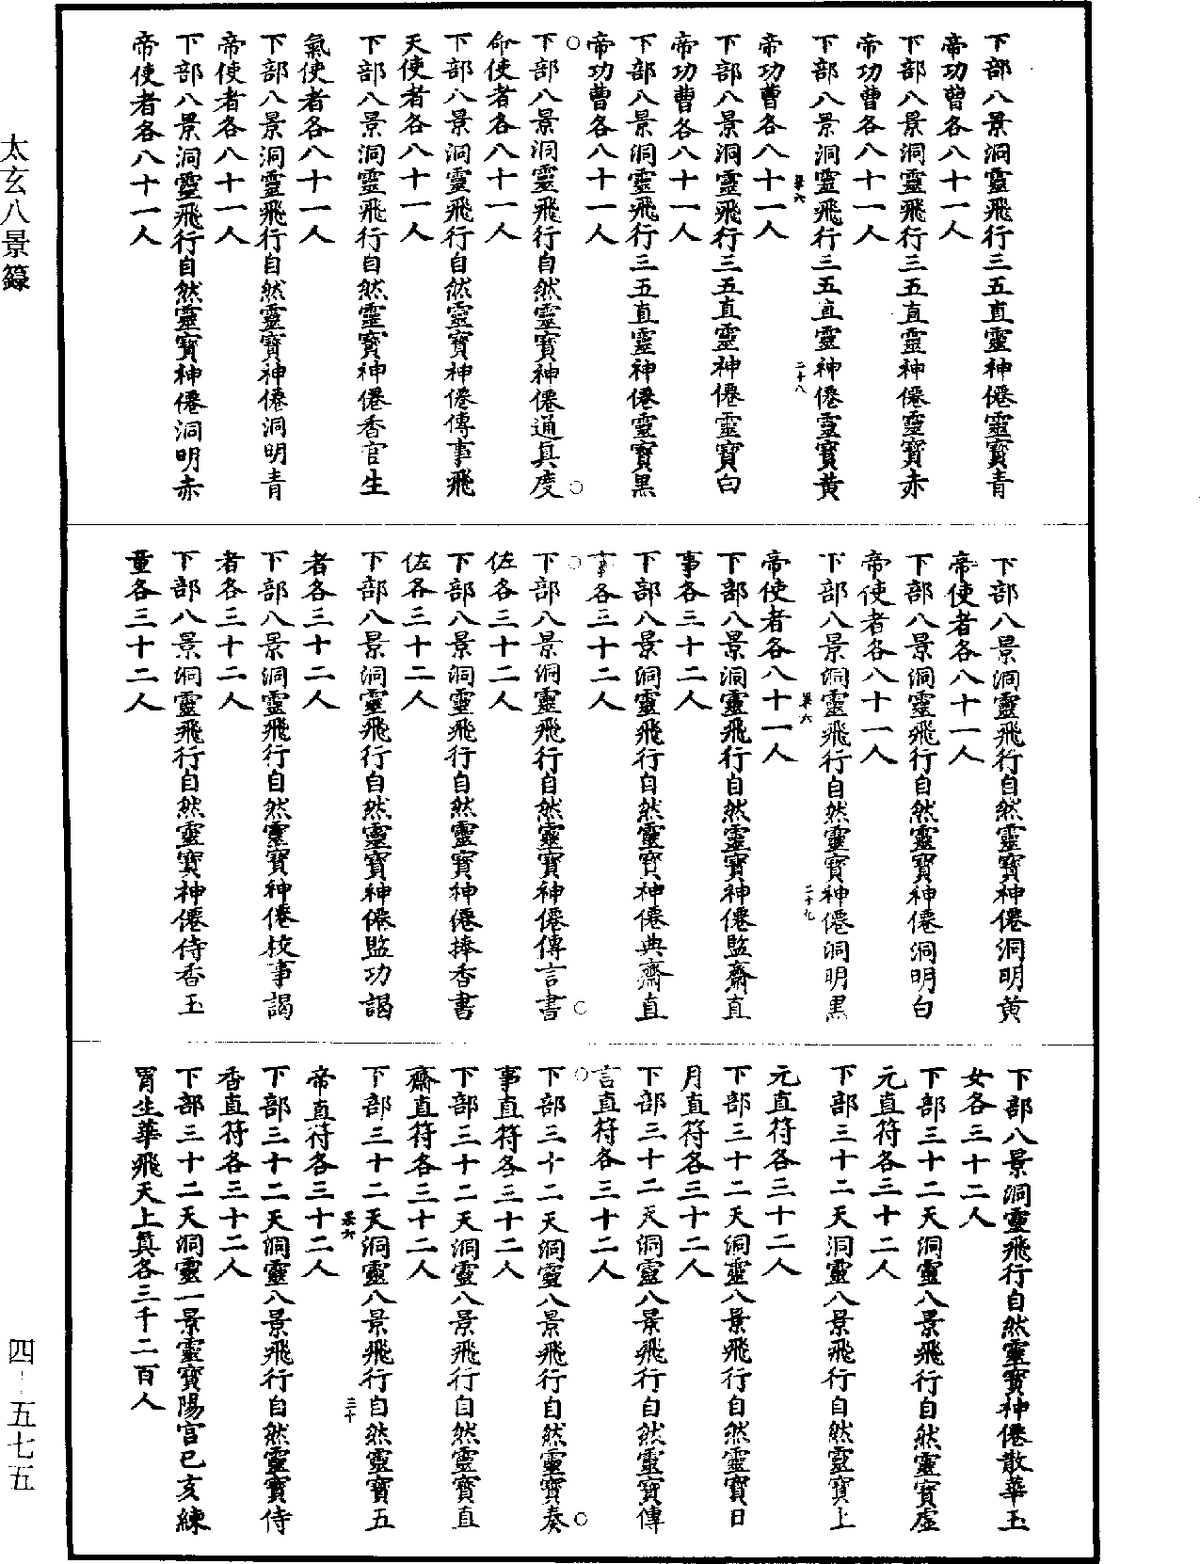 下部八景洞靈飛行三五直靈神僊靈寶青
帝功曹各八十一人
下部八景洞靈飛行三五直靈神僊靈寶赤
帝功曹各八十一人
下部八景洞靈飛行三五直靈神僊靈寶黄
帝功曹各八十一人
下部八景洞靈飛行三五直靈神僊靈寶白
帝功曹各八十一人
下部八景洞靈飛行三五直靈神僊靈寶黒
帝功曹各八十一人
下部八景洞靈飛行自然靈寶神僊通真度
命使者各八十一人
下部八景洞靈飛行自然靈寶神僊傳事飛
天使者各八十一人
下部八景洞靈飛行自然靈寶神僊香官生
氣使者各八十一人
下部八景洞靈飛行自然靈寶神僊洞明青
帝使者各八十一人
下部八景洞靈飛行自然靈寶神僊洞明赤
帝使者各八十一人
二十八
下部八景洞靈飛行自然靈寶神僊洞明黄
帝使者各八十一人
下部八景洞靈飛行自然靈寶神僊洞明白
帝使者各八十一人
下部八景洞靈飛行自然靈寶神僊洞明黒
帝使者各八十一人
下部八景洞靈飛行自然靈寶神僊監齋直
事各三十二人
下部八景洞靈飛行自然靈寶神僊典齋直
事各三十二人
下部八景洞靈飛行自然靈寶神僊傳言書
佐各三十二人
下部八景洞靈飛行自然靈寶神僊捧香書
佐各三十二人
下部八景洞靈飛行自然靈寶神僊監功謁
者各三十二人
下部八景洞靈飛行自然靈寶神僊校事謁
者各三十二人
下部八景洞靈飛行自然靈寶神僊侍香玉
童各三十二人
二十九
下部八景洞靈飛行自然靈寶神僊散華玉
女各三十二人
下部三十二天洞靈八景飛行自然靈寶虛
元直符各三十二人
下部三十二天洞靈八景飛行自然靈寶上
元直符各三十二人
下部三十二天洞靈八景飛行自然靈寶日
月直符各三十二人
下部三十二天洞靈八景飛行自然靈寶傳
言直符各三十二人
下部三十二天洞靈八景飛行自然靈寶奏
事直符各三十二人
下部三十二天洞靈八景飛行自然靈寶直
齋直符各三十二人
下部三十二天洞靈八景飛行自然靈寶五
帝直符各三十二人
下部三十二天洞靈八景飛行自然靈寶侍
香直符各三十二人
下部三十二天洞靈一景靈寶陽宫已亥練
胃生華飛天上真各三千二百人
三十
太玄八景籙
四－五七五